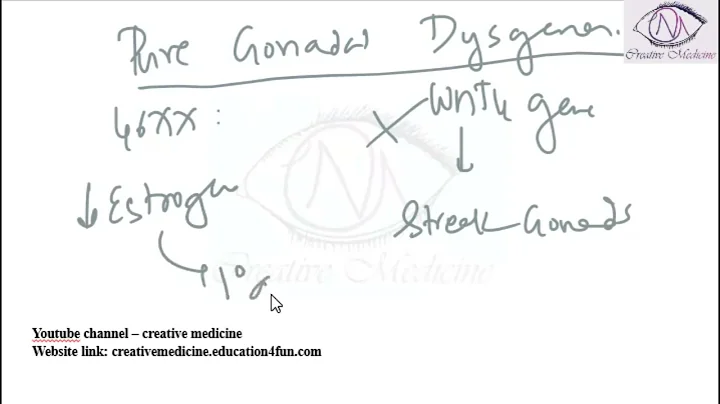 Pure Gonadal Dysgenes.
Creative Medicine
46XX :
WNT4 gene
↓ Estrogen
Streak Gonads
Creative Medicine
1°
Youtube channel – creative medicine
Website link: creativemedicine.education4fun.com